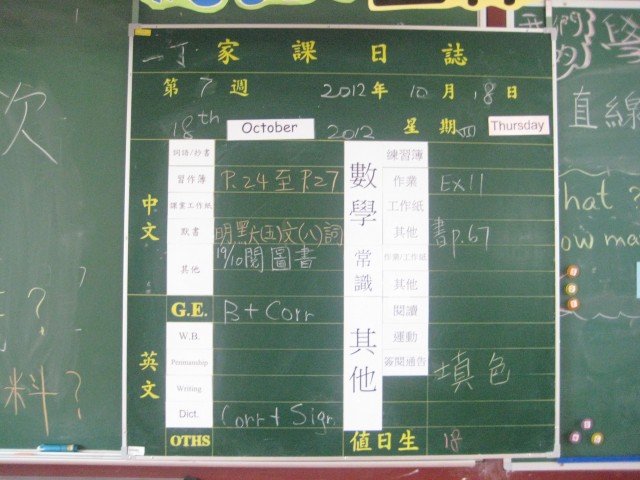 一丁 家課日誌
第 7 週 2012 年 10 月 18 日
18th October 2012 星期四 Thursday
中文
詞語/抄書
習作簿 P.24至P.27
課業工作紙
默書 明默(五)文(八)詞
其他 19/10閱圖書
英文
G.E. B + Corr
W.B.
Penmanship
Writing
Dict. Corr + Sign.
OTHS
數學
練習簿
作業 Ex11
工作紙
其他 書p.67
常識
作業/工作紙
其他
其他
閱讀
運動
簽閱通告
填色
值日生 18
次
?
料?
我們
學
直線
hat ?
ow ma